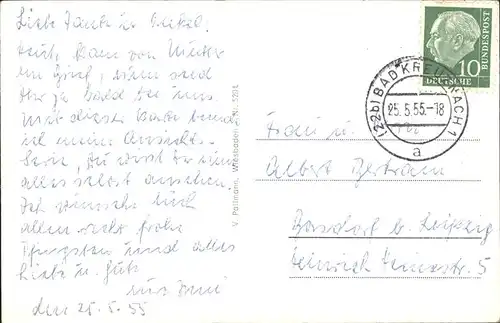 Liebe Tante u. Onkel.
Heut, kam von Mutter
ein Brief, nun seid
Ihr ja bald bei uns
Mit dieser Karte
ich meine Ansichts-
Serie, Du wirst Dir
alles selbst ansehen.
Ich wünsche Euch
allen recht frohe
Pfingsten und alles
Liebe u. Gute
den 25.5.55
V. Pollmann, Wiesbaden
DEUTSCHE BUNDESPOST
10
(22b) BAD KREUZNACH 1
25.5.55.-18
a
Frau u.
Albert Bertram
b. Leipzig
Heinrich Heinestr. 5